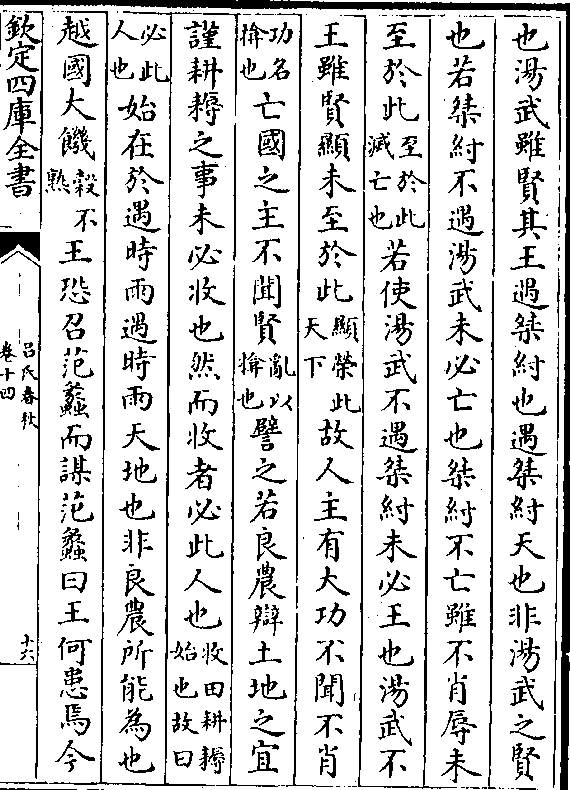 也湯武雖賢其王遇桀紂也遇桀紂天也非湯武之賢
也若桀紂不遇湯武未必亡也桀紂不亡雖不肖辱未
至於此至於此滅亡也若使湯武不遇桀紂未必王也湯武不
王雖賢顯未至於此顯榮此天下故人主有大功不聞不肖
功名揜也亡國之主不聞賢亂以揜也譬之若良農辯土地之宜
謹耕耨之事未必收也然而收者必此人也收田耕耨始也故曰
必此人也始在於遇時雨遇時雨天地也非良農所能為也
越國大饑穀不熟王恐召范蠡而謀范蠡曰王何患焉今
欽定四庫全書
呂氏春秋
卷十四
十六